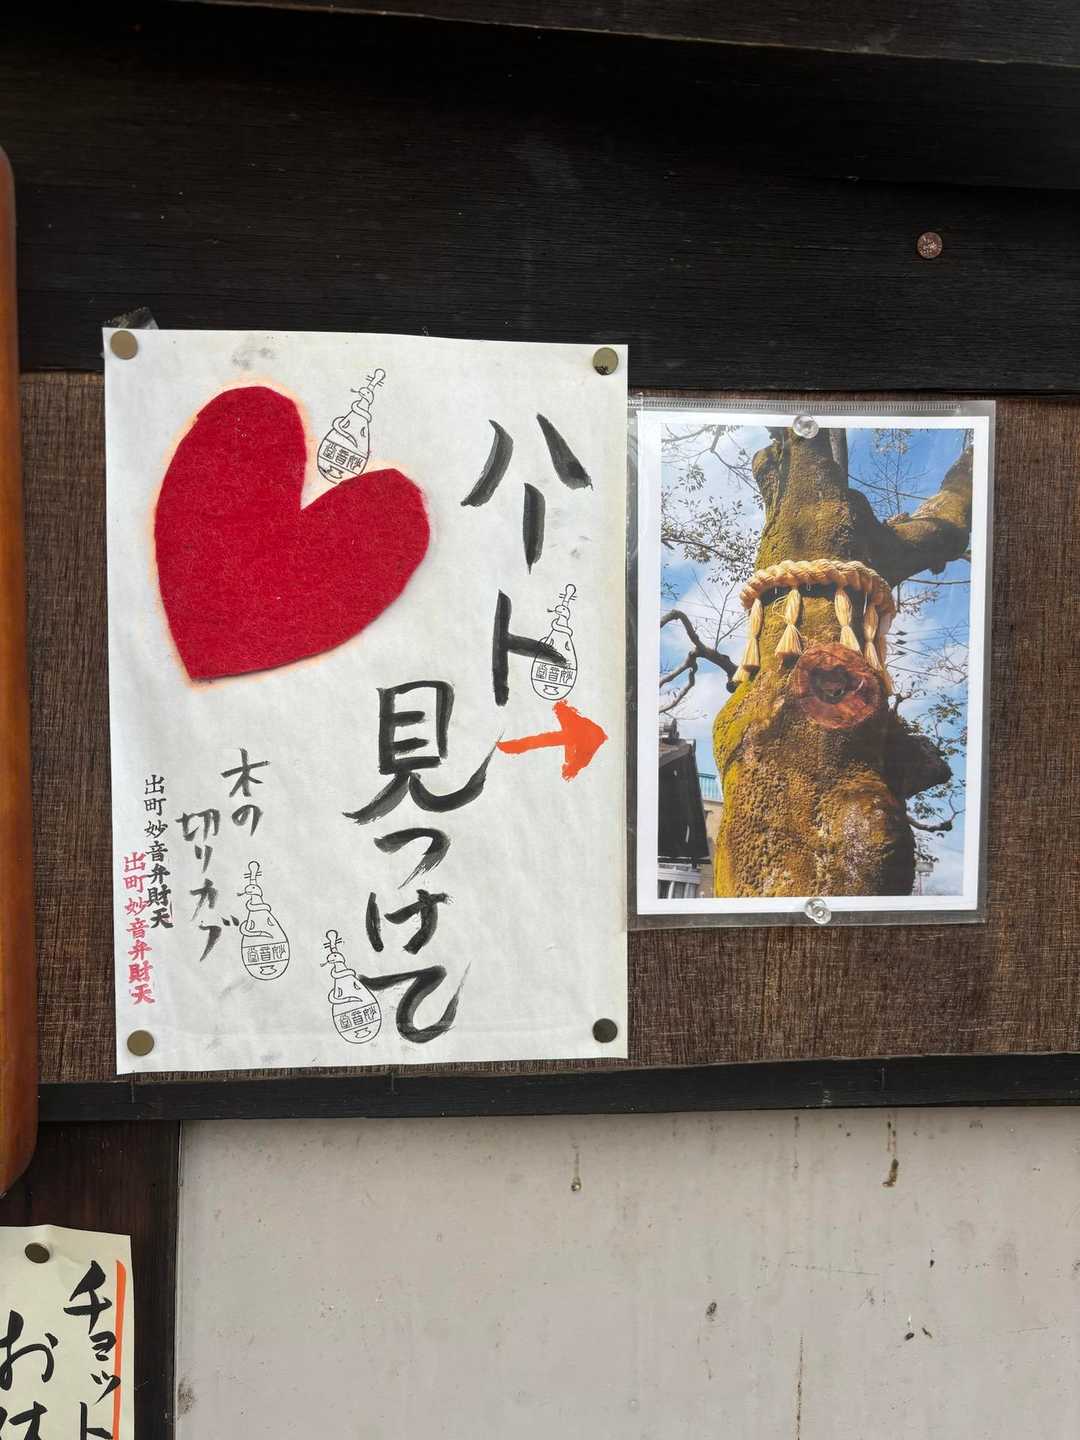 ハート
見つけて
木の
切りカブ
出町妙音弁財天
出町妙音弁財天
妙音堂
妙音堂
妙音堂
妙音堂
チョット
お休